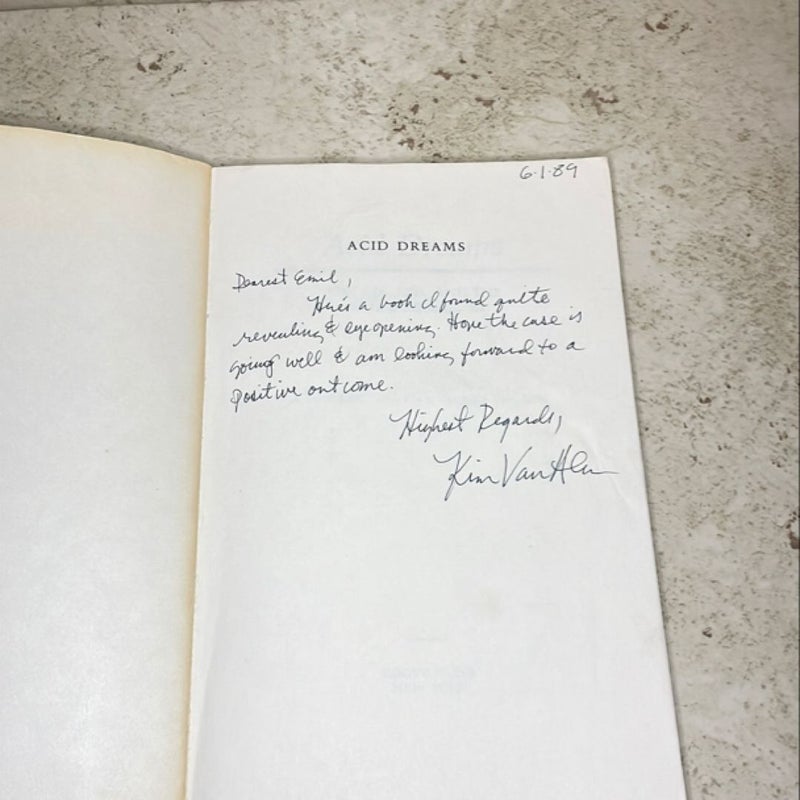 6·1·89
ACID DREAMS
Dearest Emil,
Here's a book I found quite
revealing & eye opening. Hope the case is
going well & am looking forward to a
positive outcome.
Highest Regards,
Kim Van